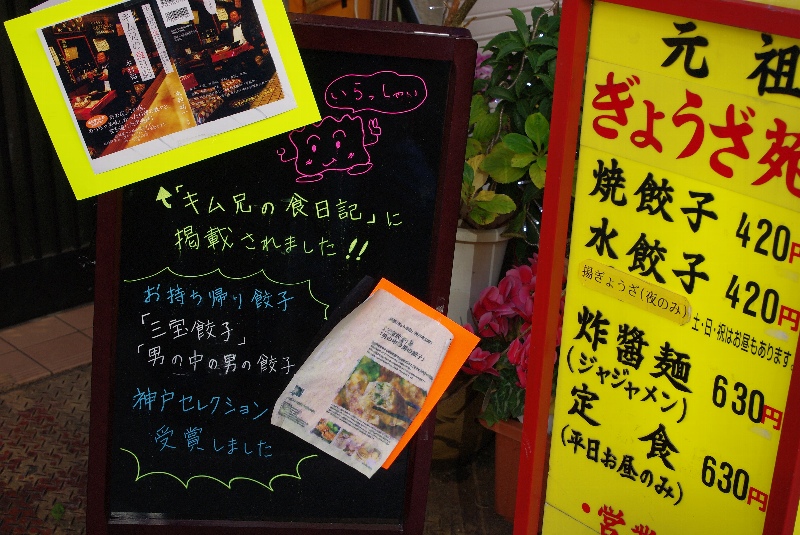 いらっしゃい
「キム兄の食日記」に
掲載されました!!
お持ち帰り餃子
「三宝餃子」
「男の中の男の餃子
神戸セレクション
受賞しました
元祖
ぎょうざ苑
焼餃子 420円
水餃子 420円
揚ぎょうざ(夜のみ)
土・日・祝はお昼もあります
炸醤麺 630円
(ジャジャメン)
定食 630円
(平日お昼のみ)
・営業